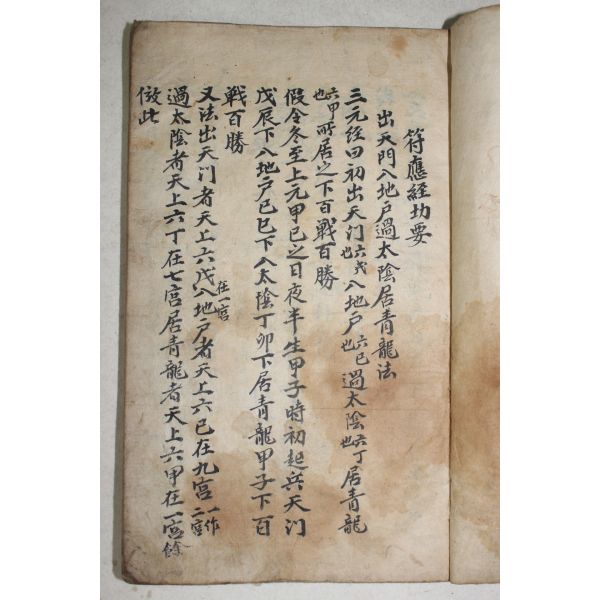 符應經切要
出天門入地戶過太陰居青龍法
三元経曰初出天门六戊也入地戶六己也過太陰六丁也居青龍
六甲也所居之下百戰百勝
假令冬至上元甲己之日夜半生甲子時初起兵天门
戊辰下入地户己巳下入太陰丁卯下居青龍甲子下百
戰百勝
又法出天门者天上六戊在一宫入地户者天上六己在九宫一作二宫
過太陰者天上六丁在七宫居青龍者天上六甲在一宫餘
倣此